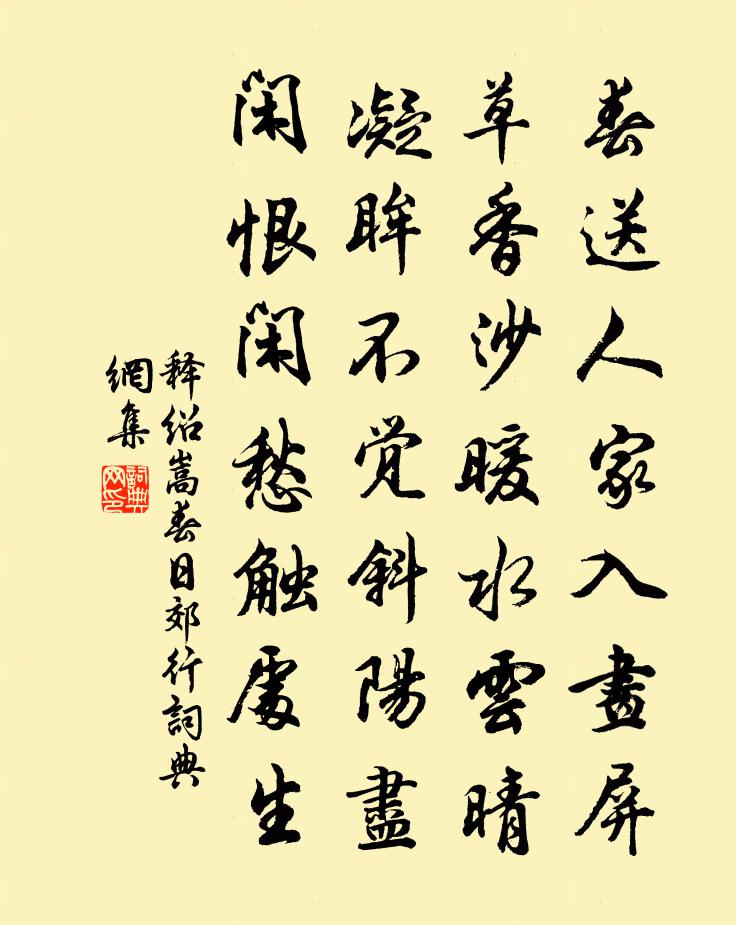 春送人家入畫屏
草香沙暖水雲晴
凝眸不觉斜陽盡
闲恨闲愁触處生
释绍嵩春日郊行詞典
網集
詞典网印